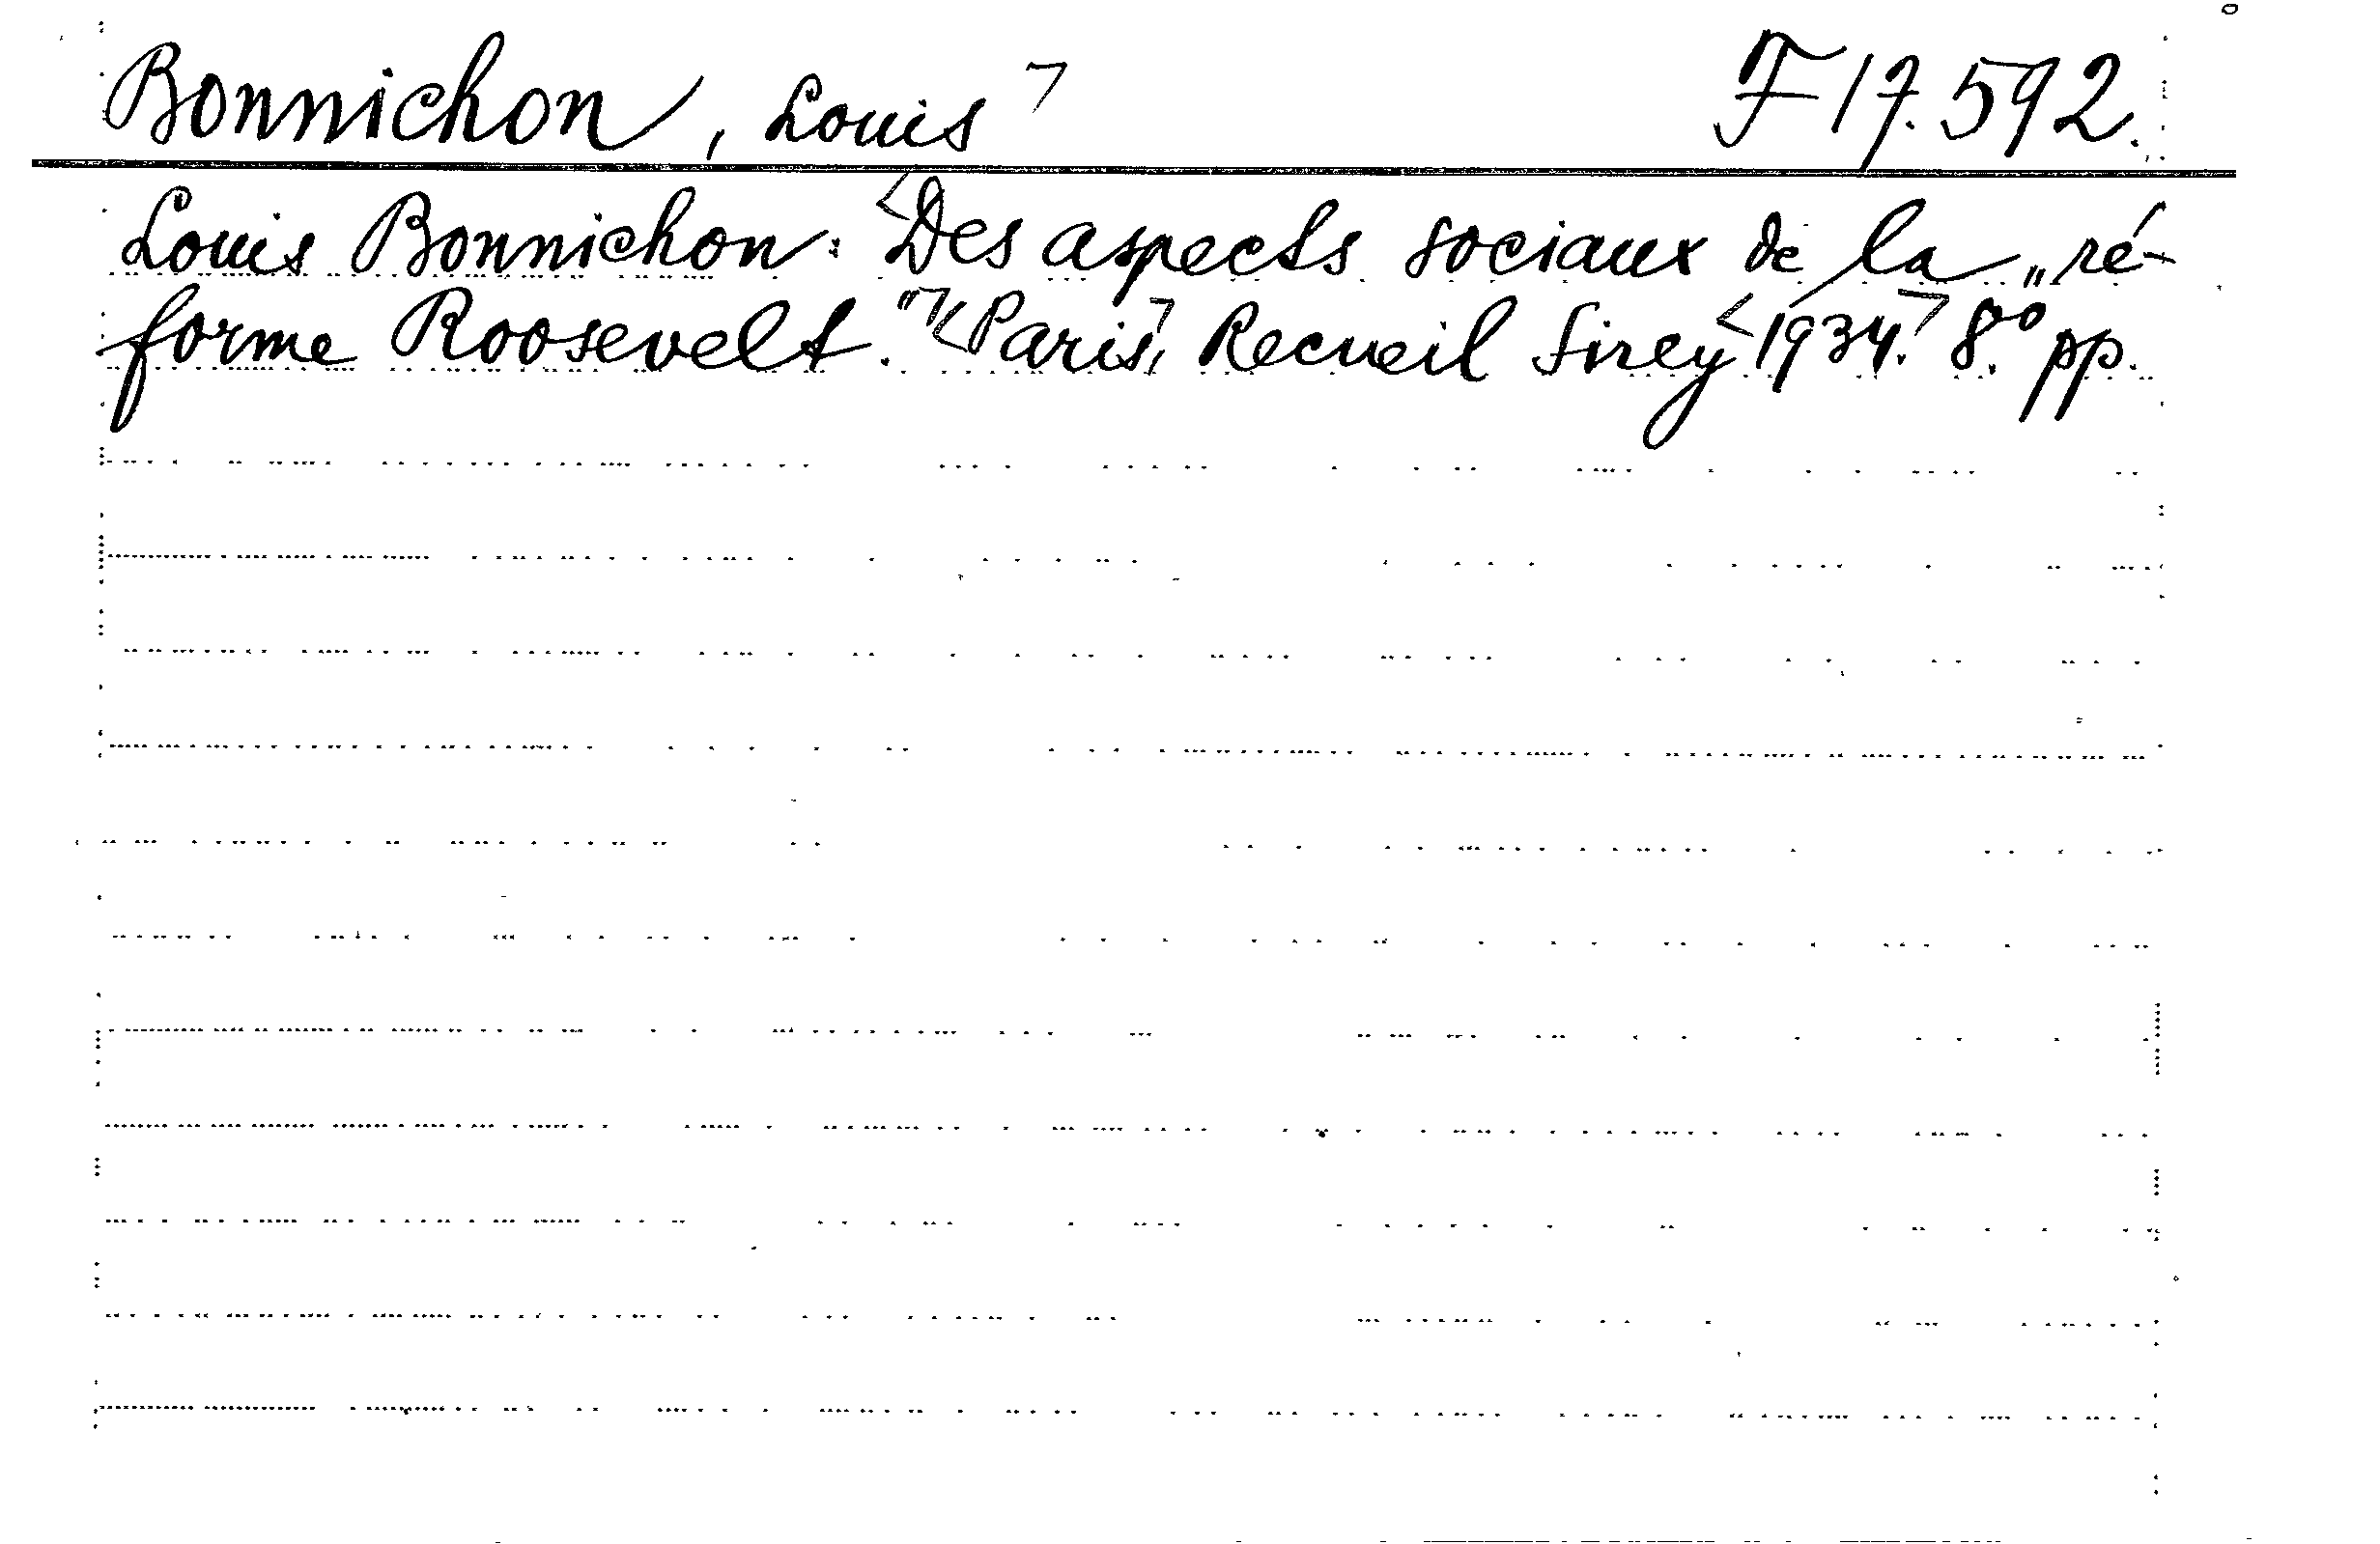 Bonnichon, Louis ㄱ F 17.592.
Louis Bonnichon: <Des aspects sociaux de la „ré-
forme Roosevelt."ㄱ <Parisㄱ, Recueil Sirey <1934.ㄱ 8.° pp.